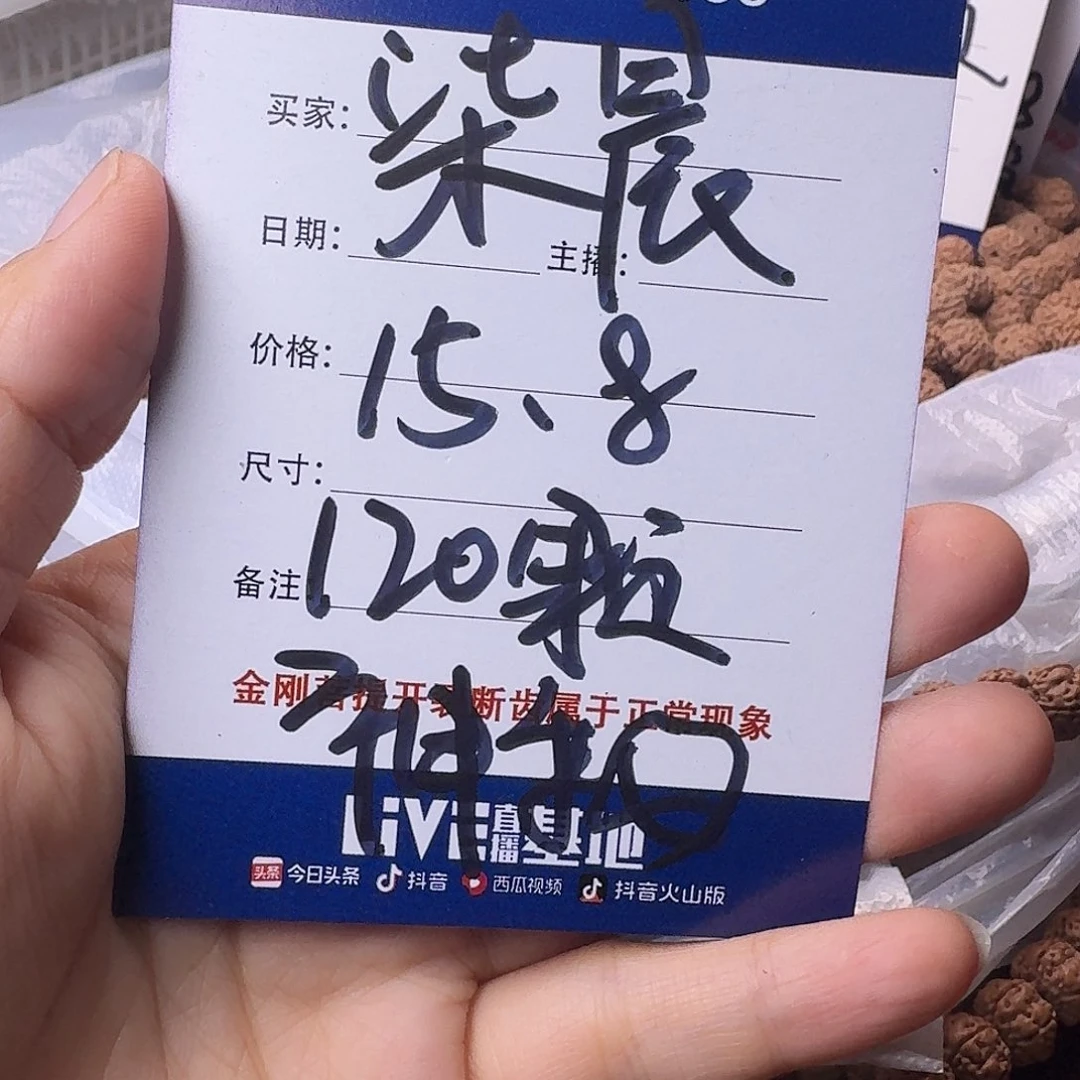 买家：柒晨
日期： 主播：
价格：15、8
尺寸：
备注 120颗
金刚菩提开裂断齿属于正常现象
LiVE直播基地
今日头条 抖音 西瓜视频 抖音火山版